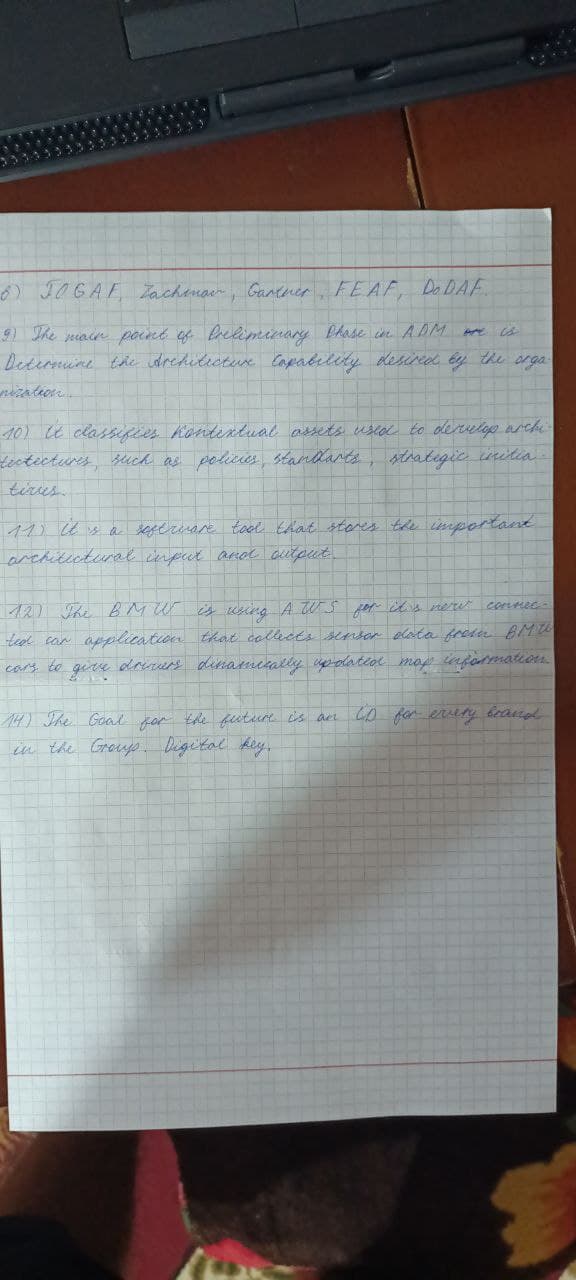 8) TOGAF, Zachman, Gartner, FEAF, DoDAF
9) The main point of Preliminary Phase in ADM is
Determine the Architecture Capability desired by the orga-
nization.
10) It classifies Kontextual assets used to develop archi-
tectectures, such as policies, standarts, strategic initia-
tives.
11) it's a software tool that stores the important
architectural input and output.
12) The BMW is using AWS for it's new connec-
ted car application that collects sensor data from BMW
cars to give drivers dinamically updated map information
14) The Goal for the future is an CD for every brand
in the Group. Digital key.